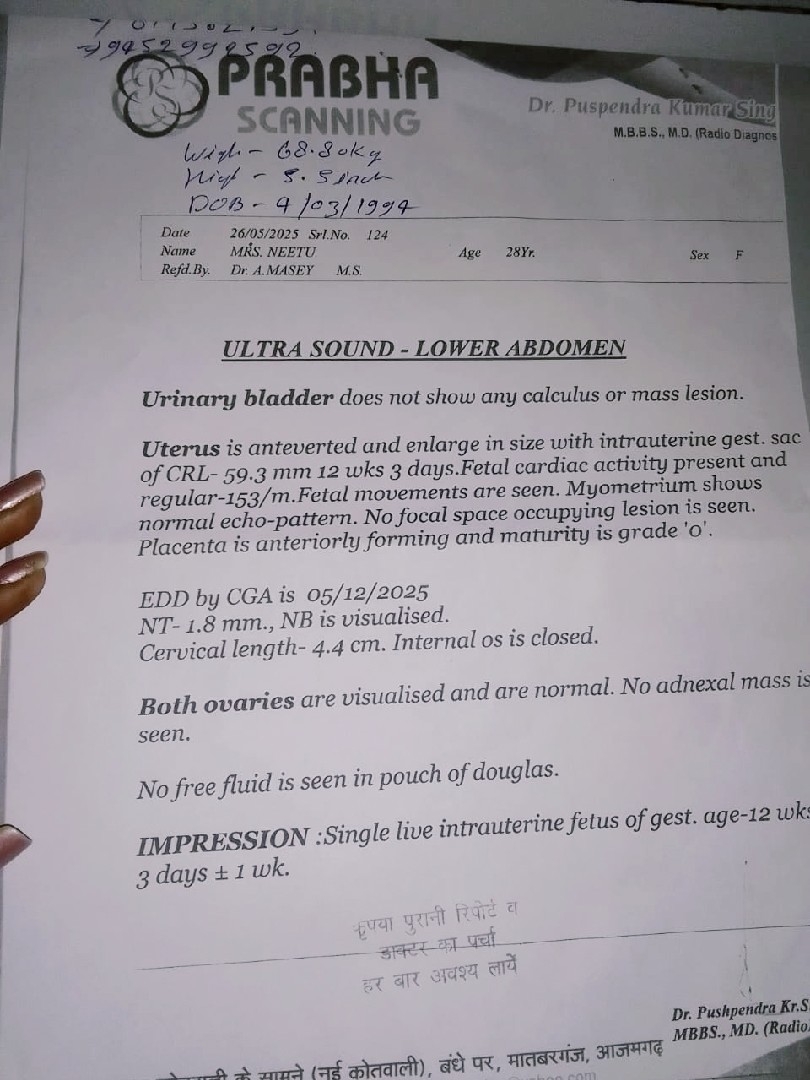 9452992592
PRABHA
SCANNING
Dr. Puspendra Kumar Sing
M.B.B.S., M.D. (Radio Diagnos
Wigh - 68.80Kg
High - 5.5 inch
DOB - 4/03/1994
Date 26/05/2025 Srl.No. 124
Name MRS. NEETU Age 28Yr. Sex F
Refd.By. Dr. A.MASEY M.S.
ULTRA SOUND - LOWER ABDOMEN
Urinary bladder does not show any calculus or mass lesion.
Uterus is anteverted and enlarge in size with intrauterine gest. sac
of CRL- 59.3 mm 12 wks 3 days.Fetal cardiac activity present and
regular-153/m.Fetal movements are seen. Myometrium shows
normal echo-pattern. No focal space occupying lesion is seen.
Placenta is anteriorly forming and maturity is grade 'o'.
EDD by CGA is 05/12/2025
NT- 1.8 mm., NB is visualised.
Cervical length- 4.4 cm. Internal os is closed.
Both ovaries are visualised and are normal. No adnexal mass is
seen.
No free fluid is seen in pouch of douglas.
IMPRESSION :Single live intrauterine fetus of gest. age-12 wks
3 days ± 1 wk.
कृपया पुरानी रिपोर्ट व
डाक्टर का पर्चा
हर बार अवश्य लायें
Dr. Pushpendra Kr.S
MBBS., MD. (Radio
के सामने (नई कोतवाली), बंधे पर, मातबरगंज, आजमगढ़